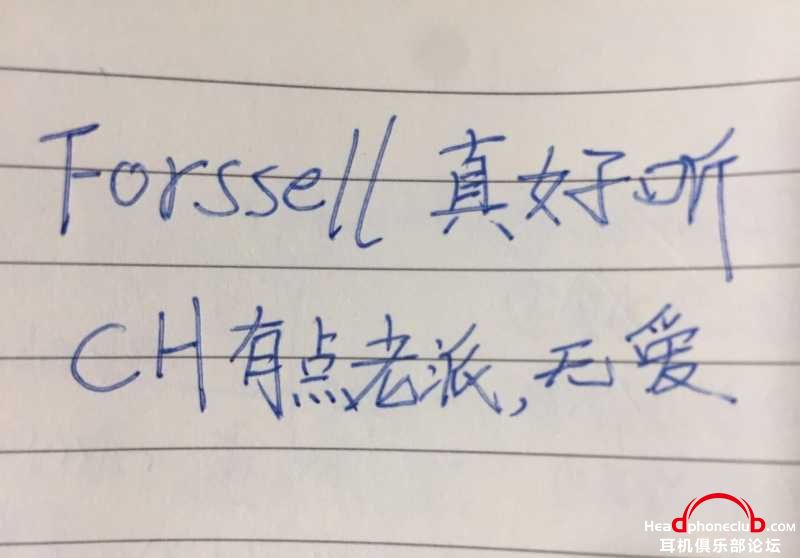 Forssell 真好听
CH有点老派,无爱
Headphoneclub.com
耳机俱乐部论坛